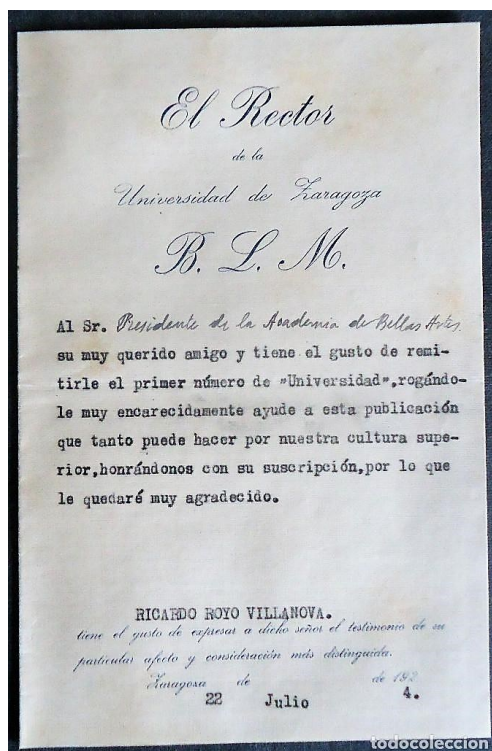 El Rector
de la
Universidad de Zaragoza
B. L. M.
Al Sr. Presidente de la Academia de Bellas Artes
su muy querido amigo y tiene el gusto de remi-
tirle el primer número de "Universidad",rogándo-
le muy encarecidamente ayude a esta publicación
que tanto puede hacer por nuestra cultura supe-
rior,honrándonos con su suscripción,por lo que
le quedaré muy agradecido.
RICARDO ROYO VILLANOVA.
tiene el gusto de expresar a dicho señor el testimonio de su
particular afecto y consideración más distinguida.
Zaragoza 22 de Julio de 1924.
todocoleccion